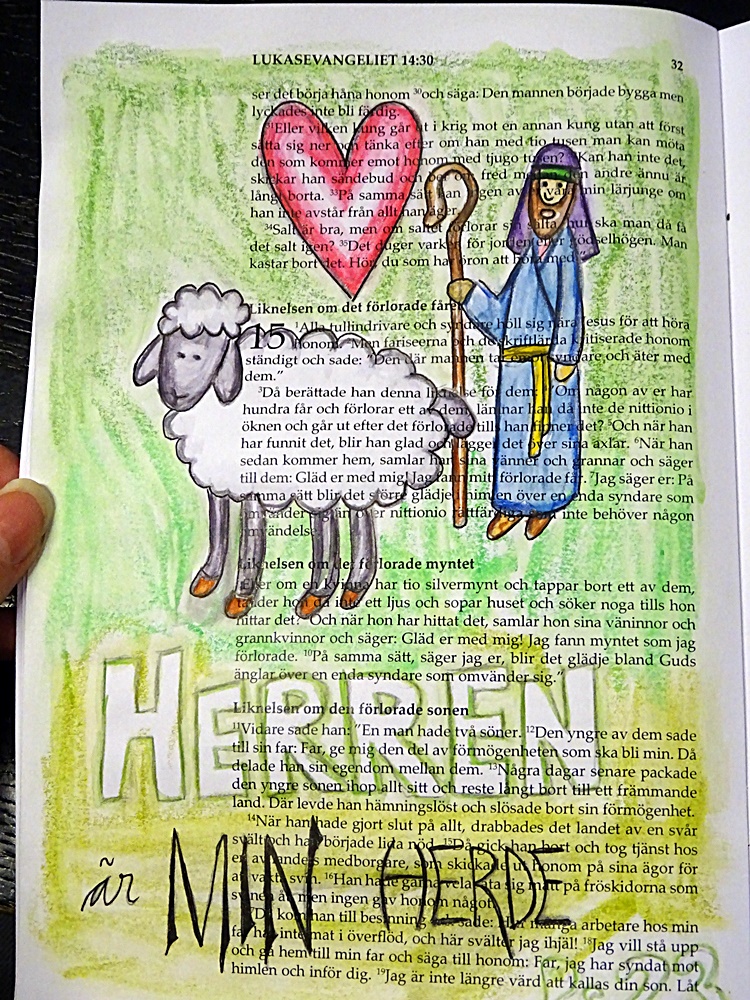 LUKASEVANGELIET 14:30 32
ser det börja håna honom ³⁰och säga: Den mannen började bygga men
lyckades inte bli färdig.
³¹Eller vilken kung går ut i krig mot en annan kung utan att först
sätta sig ner och tänka efter om han med tio tusen man kan möta
den som kommer emot honom med tjugo tusen? ³²Kan han inte det,
skickar han sändebud och ber om fred medan den andre ännu är
långt borta. ³³På samma sätt kan ingen av er vara min lärjunge om
han inte avstår från allt han äger.
³⁴Salt är bra, men om saltet förlorar sin sälta, hur ska man då få
det salt igen? ³⁵Det duger varken för jorden eller gödselhögen. Man
kastar bort det. Hör, du som har öron att höra med."
Liknelsen om det förlorade fåret
15 ¹Alla tullindrivare och syndare höll sig nära Jesus för att höra
honom. ²Men fariseerna och de skriftlärda kritiserade honom
ständigt och sade: "Den där mannen tar emot syndare och äter med
dem."
³Då berättade han denna liknelse för dem: ⁴"Om någon av er har
hundra får och förlorar ett av dem, lämnar han då inte de nittionio i
öknen och går ut efter det förlorade tills han finner det? ⁵Och när han
har funnit det, blir han glad och lägger det över sina axlar. ⁶När han
sedan kommer hem, samlar han sina vänner och grannar och säger
till dem: Gläd er med mig! Jag fann mitt förlorade får. ⁷Jag säger er: På
samma sätt blir det större glädje i himlen över en enda syndare som
omvänder sig än över nittionio rättfärdiga som inte behöver någon
omvändelse.
Liknelsen om det förlorade myntet
⁸Eller om en kvinna har tio silvermynt och tappar bort ett av dem,
tänder hon då inte ett ljus och sopar huset och söker noga tills hon
hittar det? ⁹Och när hon har hittat det, samlar hon sina väninnor och
grannkvinnor och säger: Gläd er med mig! Jag fann myntet som jag
förlorade. ¹⁰På samma sätt, säger jag er, blir det glädje bland Guds
änglar över en enda syndare som omvänder sig."
HERREN
Liknelsen om den förlorade sonen
¹¹Vidare sade han: "En man hade två söner. ¹²Den yngre av dem sade
till sin far: Far, ge mig den del av förmögenheten som ska bli min. Då
delade han sin egendom mellan dem. ¹³Några dagar senare packade
den yngre sonen ihop allt sitt och reste långt bort till ett främmande
land. Där levde han hämningslöst och slösade bort sin förmögenhet.
¹⁴När han hade gjort slut på allt, drabbades det landet av en svår
svält och han började lida nöd. ¹⁵Då gick han bort och tog tjänst hos
en av landets medborgare, som skickade ut honom på sina ägor för
att vakta svin. ¹⁶Han hade gärna velat äta sig mätt på fröskidorna som
svinen åt, men ingen gav honom något.
är MIN HERDE
¹⁷Då kom han till besinning och sade: Hur många arbetare hos min
far har inte mat i överflöd, och här svälter jag ihjäl! ¹⁸Jag vill stå upp
och gå hem till min far och säga till honom: Far, jag har syndat mot
himlen och inför dig. ¹⁹Jag är inte längre värd att kallas din son. Låt